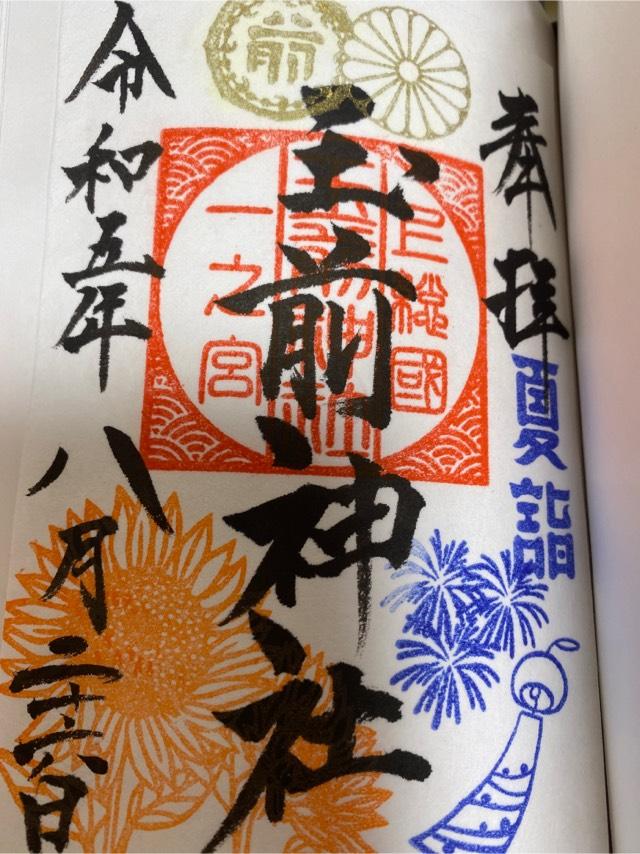 奉拝
夏詣
上総國
玉前神社
一之宮
前
玉前神社
令和五年八月二十六日